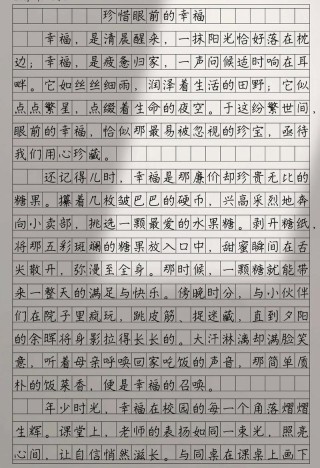 珍惜眼前的幸福
幸福，是清晨醒来，一抹阳光恰好落在枕
边；幸福，是疲惫归家，一声问候适时响在耳
畔。它如丝丝细雨，润泽着生活的田野；它似
点点繁星，点缀着生命的夜空。于这纷繁世间，
眼前的幸福，恰似那最易被忽视的珍宝，亟待
我们用心珍藏。
还记得儿时，幸福是那廉价却珍贵无比的
糖果。攥着几枚皱巴巴的硬币，兴高采烈地奔
向小卖部，挑选一颗最爱的水果糖。剥开糖纸，
将那五彩斑斓的糖果放入口中，甜蜜瞬间在舌
尖散开，弥漫至全身。那时候，一颗糖就能带
来一整天的满足与快乐。傍晚时分，与小伙伴
们在院子里疯玩，跳皮筋、捉迷藏，直到夕阳
的余晖将身影拉得长长的。大汗淋漓却满脸笑
意，听着母亲呼唤回家吃饭的声音，那简单质
朴的饭菜香，便是幸福的召唤。
年少时光，幸福在校园的每一个角落熠熠
生辉。课堂上，老师的表扬如同一束光，照亮
心间，让自信悄然滋长。与同桌在课桌上画下